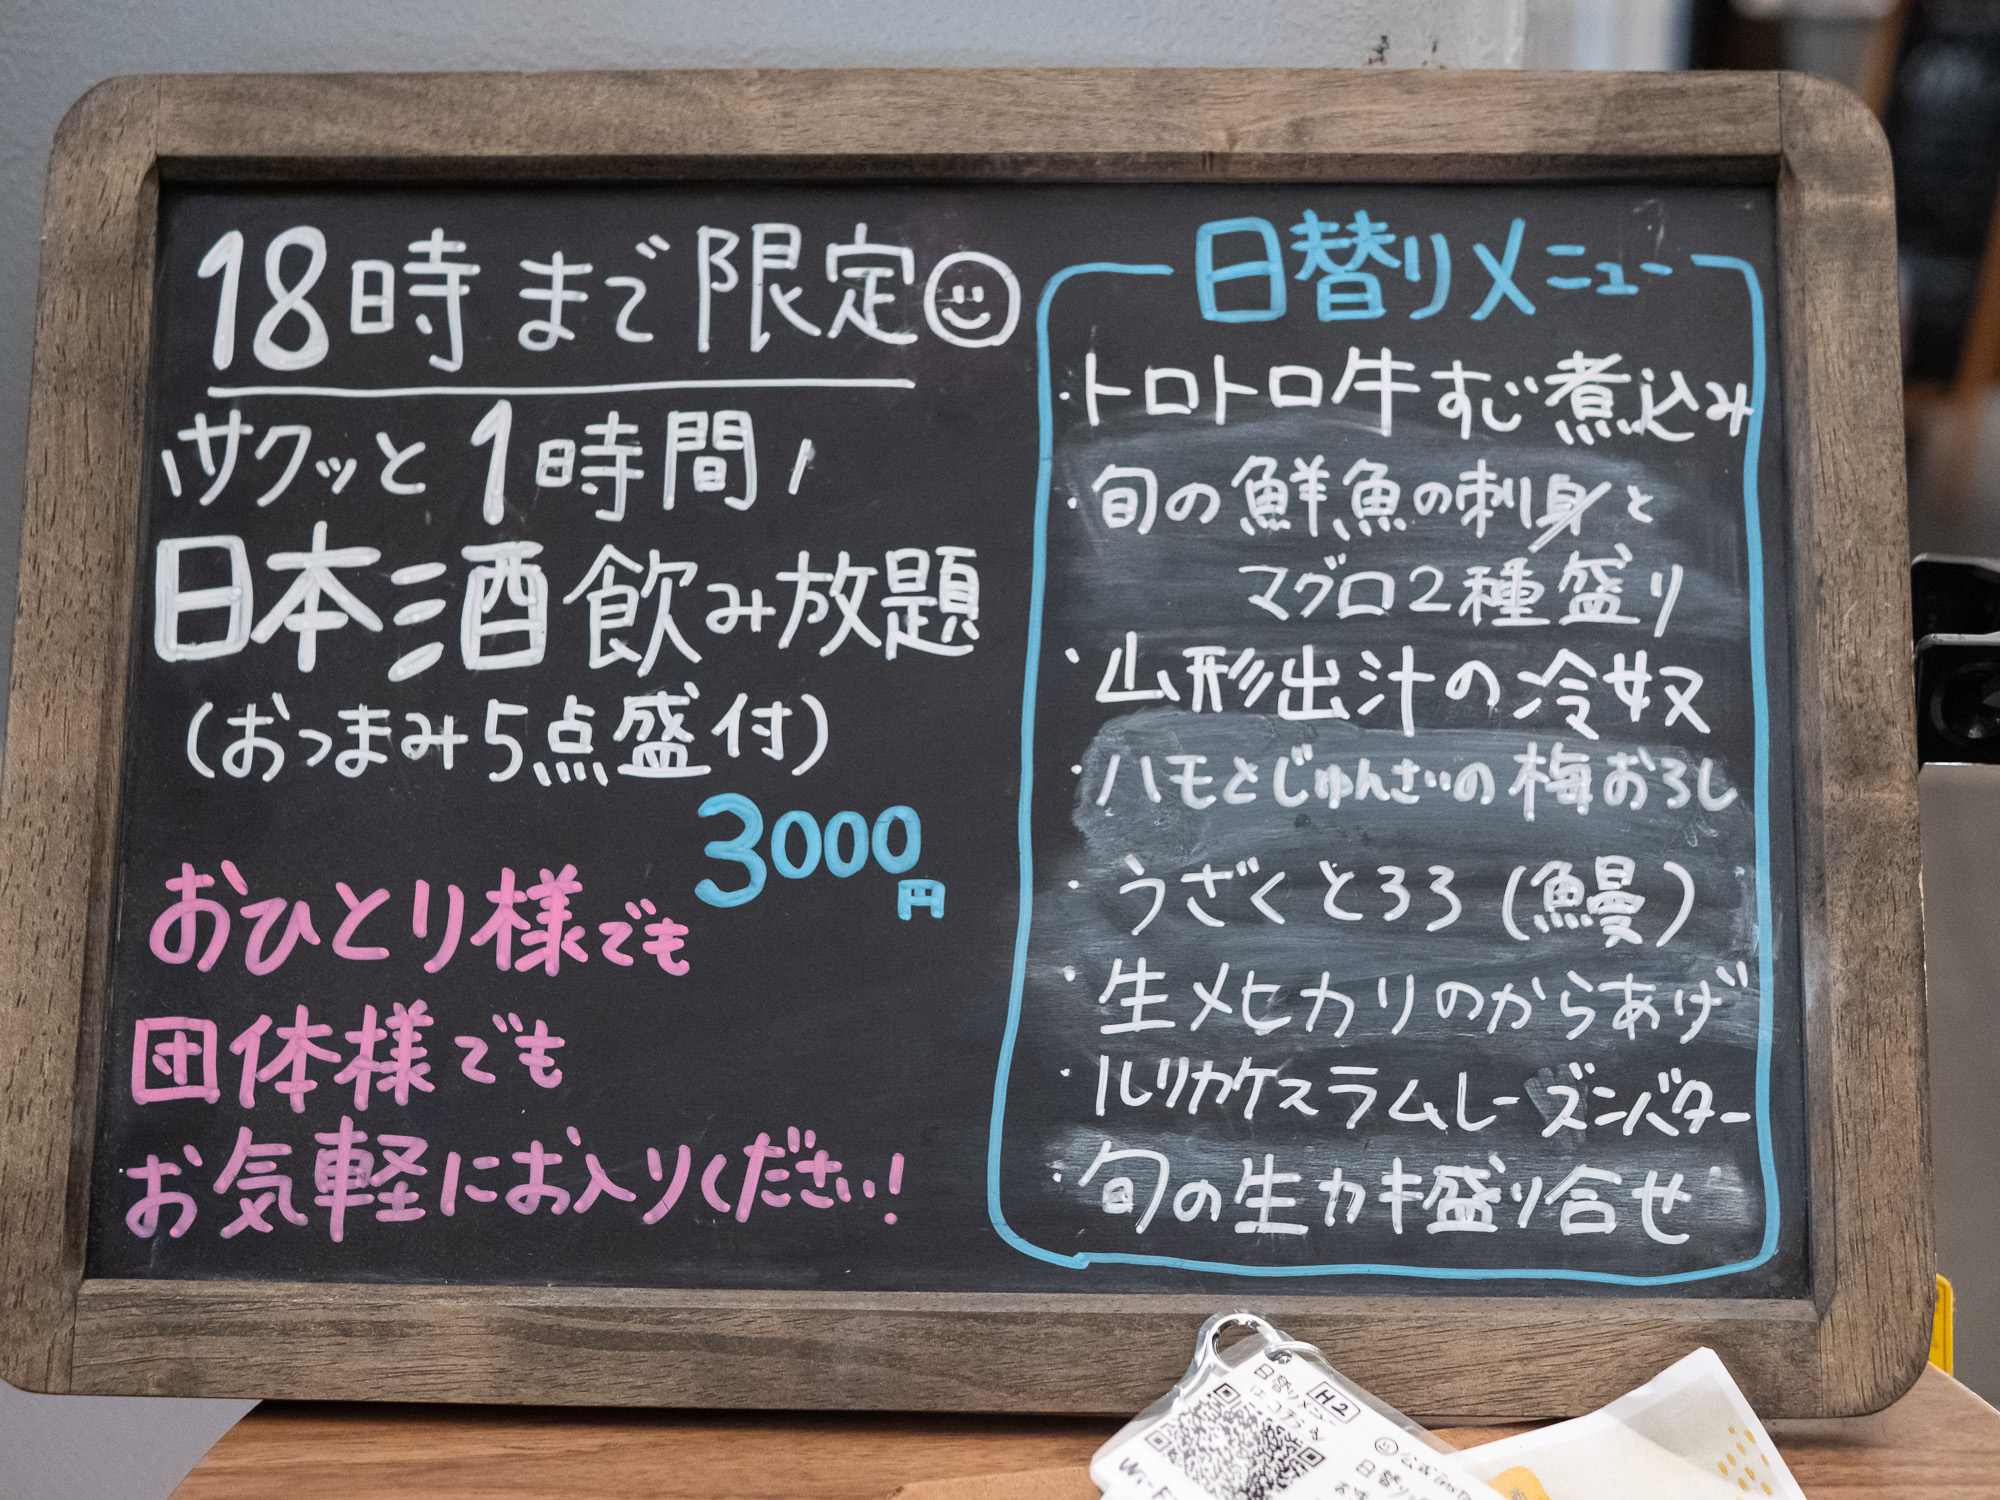 18時まで限定
サクッと1時間
日本酒飲み放題
(おつまみ5点盛付)
3000円
おひとり様でも
団体様でも
お気軽にお入りください!
日替りメニュー
・トロトロ牛すじ煮込み
・旬の鮮魚の刺身と
マグロ2種盛り
・山形出汁の冷奴
・ハモとじゅんさいの梅おろし
・うざくとろろ(鰻)
・生メヒカリのからあげ
・ルリカケスラムレーズンバター
・旬の生カキ盛り合せ
H2
日替りメニュー